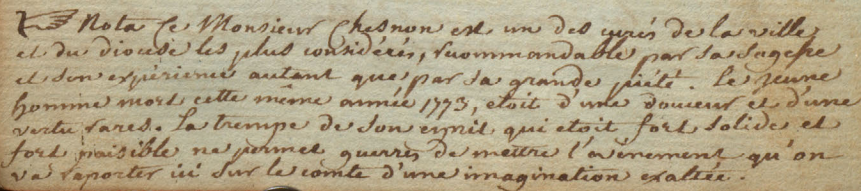 Nota Ce Monsieur Chesnon est un des curés de la ville
et du diocese les plus considérés, recommandable par sa sagesse
et son expérience autant que par sa grande piété. Le jeune
homme mort cette même année 1773, étoit d'une douceur et d'une
vertu rares. La trempe de son esprit qui étoit fort solide et
fort paisible ne permet guerres de mettre l'événement qu'on
va raporter ici sur le comte d'une imagination exaltée.